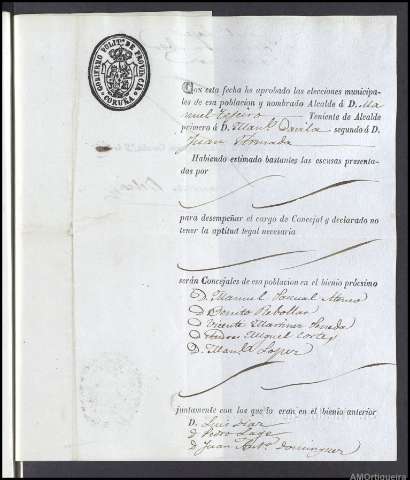 GOBIERNO POLITº DE PROVINCIA
CORUÑA
Con esta fecha he aprobado las elecciones municipa-
les de esa poblacion y nombrado Alcalde á D. Ma
nuel Teniente de Alcalde
primero á D. Manl. Davila segundo á D.
Juan
Habiendo estimado bastantes las escusas presenta-
das por
para desempeñar el cargo de Concejal y declarado no
tener la aptitud legal necesaria
serán Concejales de esa poblacion en el bienio próximo
D. Manuel Pascual
D. Benito Rebollar
D. Vicente Martinez
D. Miguel Cortés
D. Manl. Lopez
juntamente con los que lo eran en el bienio anterior
D. Luis Diaz
D. Pedro Lage
D. Juan Antº. Dominguez
AMOrtigueira